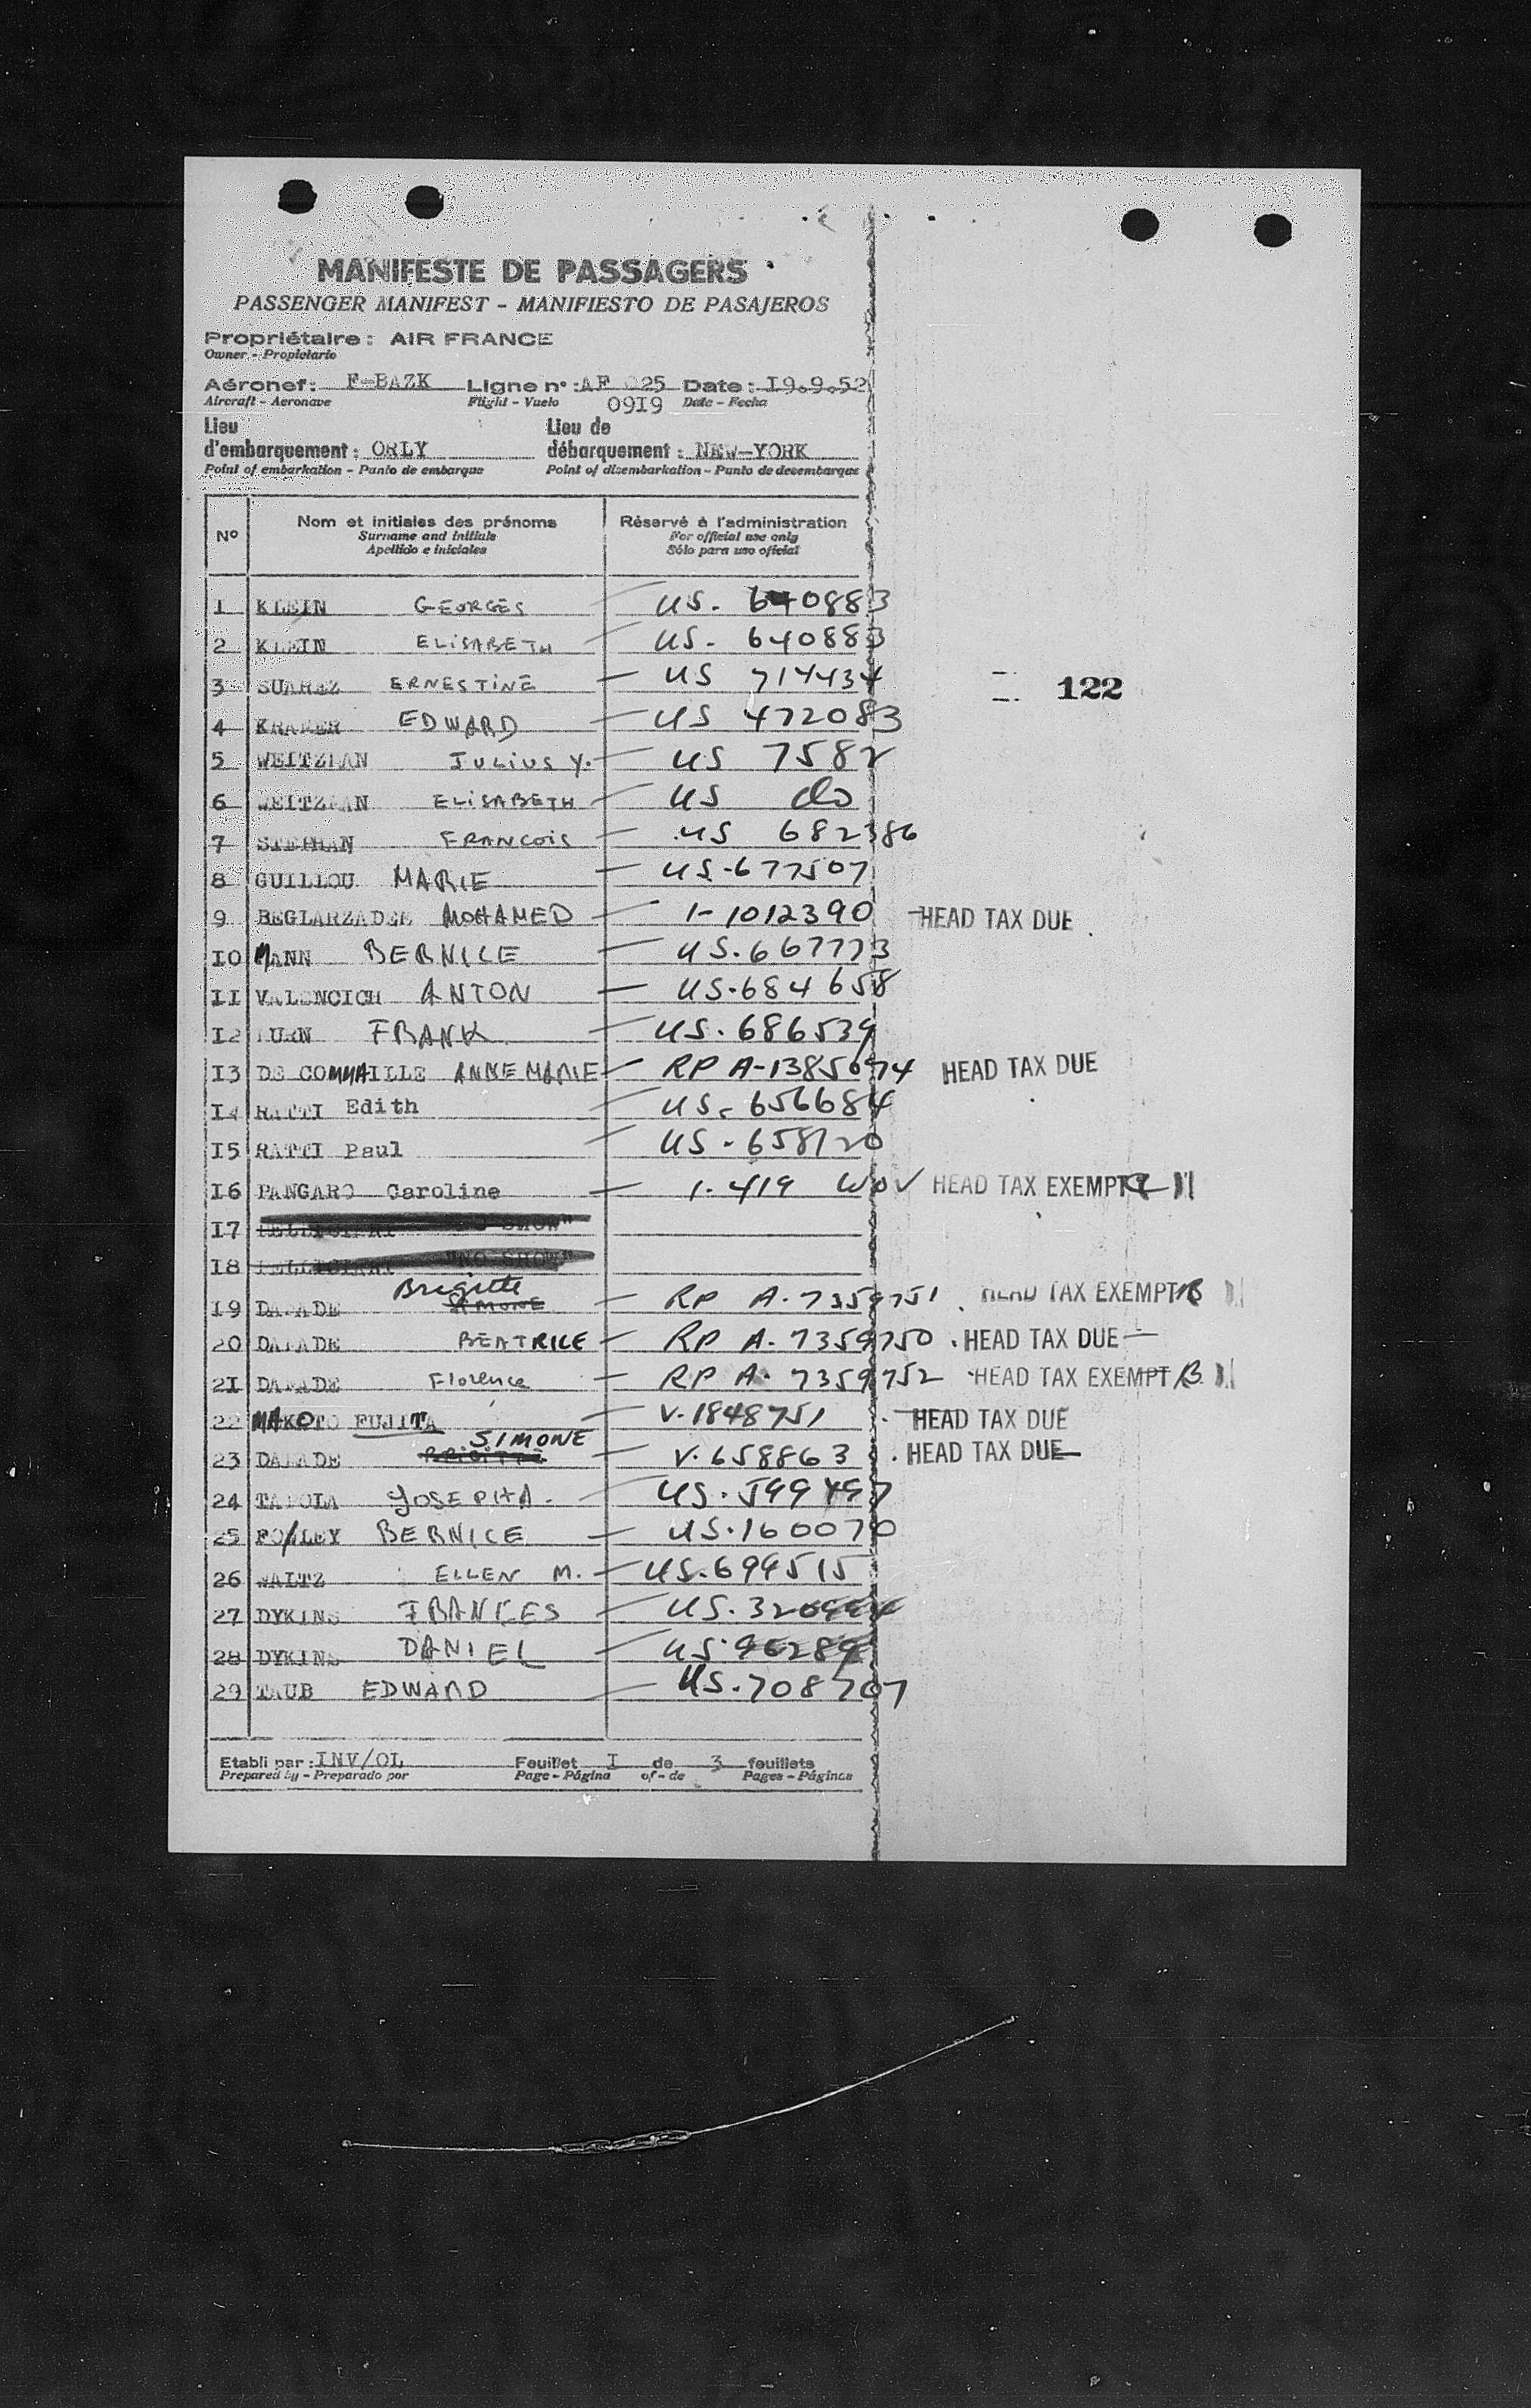 MANIFESTE DE PASSAGERS
PASSENGER MANIFEST - MANIFIESTO DE PASAJEROS
Propriétaire : AIR FRANCE
Owner - Propietario
Aéronef : F-BAZK Ligne n° : AF 025 Date : I9.9.52
Aircraft - Aeronave Flight - Vuelo 09I9 Date - Fecha
Lieu d'embarquement : ORLY Lieu de débarquement : NEW-YORK
Point of embarkation - Punto de embarque Point of disembarkation - Punto de desembarque
N° Nom et initiales des prénoms Réservé à l'administration
Surname and initials For official use only
Apellido e iniciales Sólo para uso oficial
1 KLEIN GEORGES US. 640883
2 KLEIN ELISABETH US. 640883
3 SUAREZ ERNESTINE US 714434
122
4 KRAMER EDWARD US 472083
5 WEITZMAN JULIUS Y. US 7582
6 WEITZMAN ELISABETH US do
7 STEPHAN FRANCOIS US 682386
8 GUILLOU MARIE US-677507
9 BEGLARZADEH MOHAMED 1-1012390 HEAD TAX DUE
I0 MANN BERNICE US.667773
II VALENCICH ANTON US.684658
I2 FRANK US.686539
I3 DE COMMAILLE ANNE MARIE RP A-1385074 HEAD TAX DUE
I4 RATTI Edith US. 656684
I5 RATTI Paul US-658120
I6 PANGARO Caroline 1-419 WOV HEAD TAX EXEMPT
I7 "NO SHOW"
I8 "NO SHOW"
Brigitte
I9 SIMONE RP A-7359751 HEAD TAX EXEMPT
20 BEATRICE RP A-7359750 HEAD TAX DUE
2I Florence RP A-7359752 HEAD TAX EXEMPT
22 MAKOTO FUJITA V-1848751 HEAD TAX DUE
SIMONE
23 BRIGITTE V.658863 HEAD TAX DUE
24 JOSEPHA US.599497
25 BERNICE US.160070
26 WALTZ ELLEN M. US.699515
27 DYKINS FRANCES US.
28 DYKINS DANIEL US
29 TAUB EDWARD US.708707
Etabli par : INV/OL Feuillet I de 3 feuillets
Prepared by - Preparado por Page - Página of - de Pages - Páginas